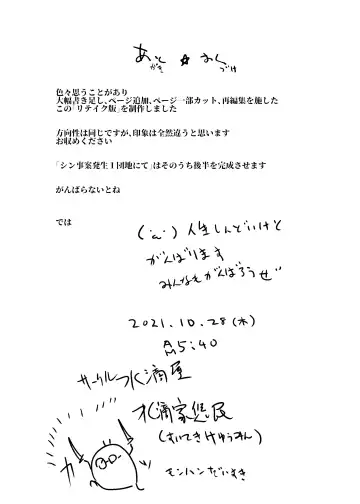 色々思うことがあり
大幅書き足し、ページ追加、ページ一部カット、再編集を施した
この「リテイク版」を制作しました
方向性は同じですが、印象は全然違うと思います
お収めください
「シン事案発生1団地にて」はそのうち後半を完成させます
がんばらないとね
では
人生しんどいけど
がんばります
みんなもがんばろうぜ
2021.10.28(木)
AM5:40
サークル水滴屋
(すいてききゅうみん)
モンハンだいすき